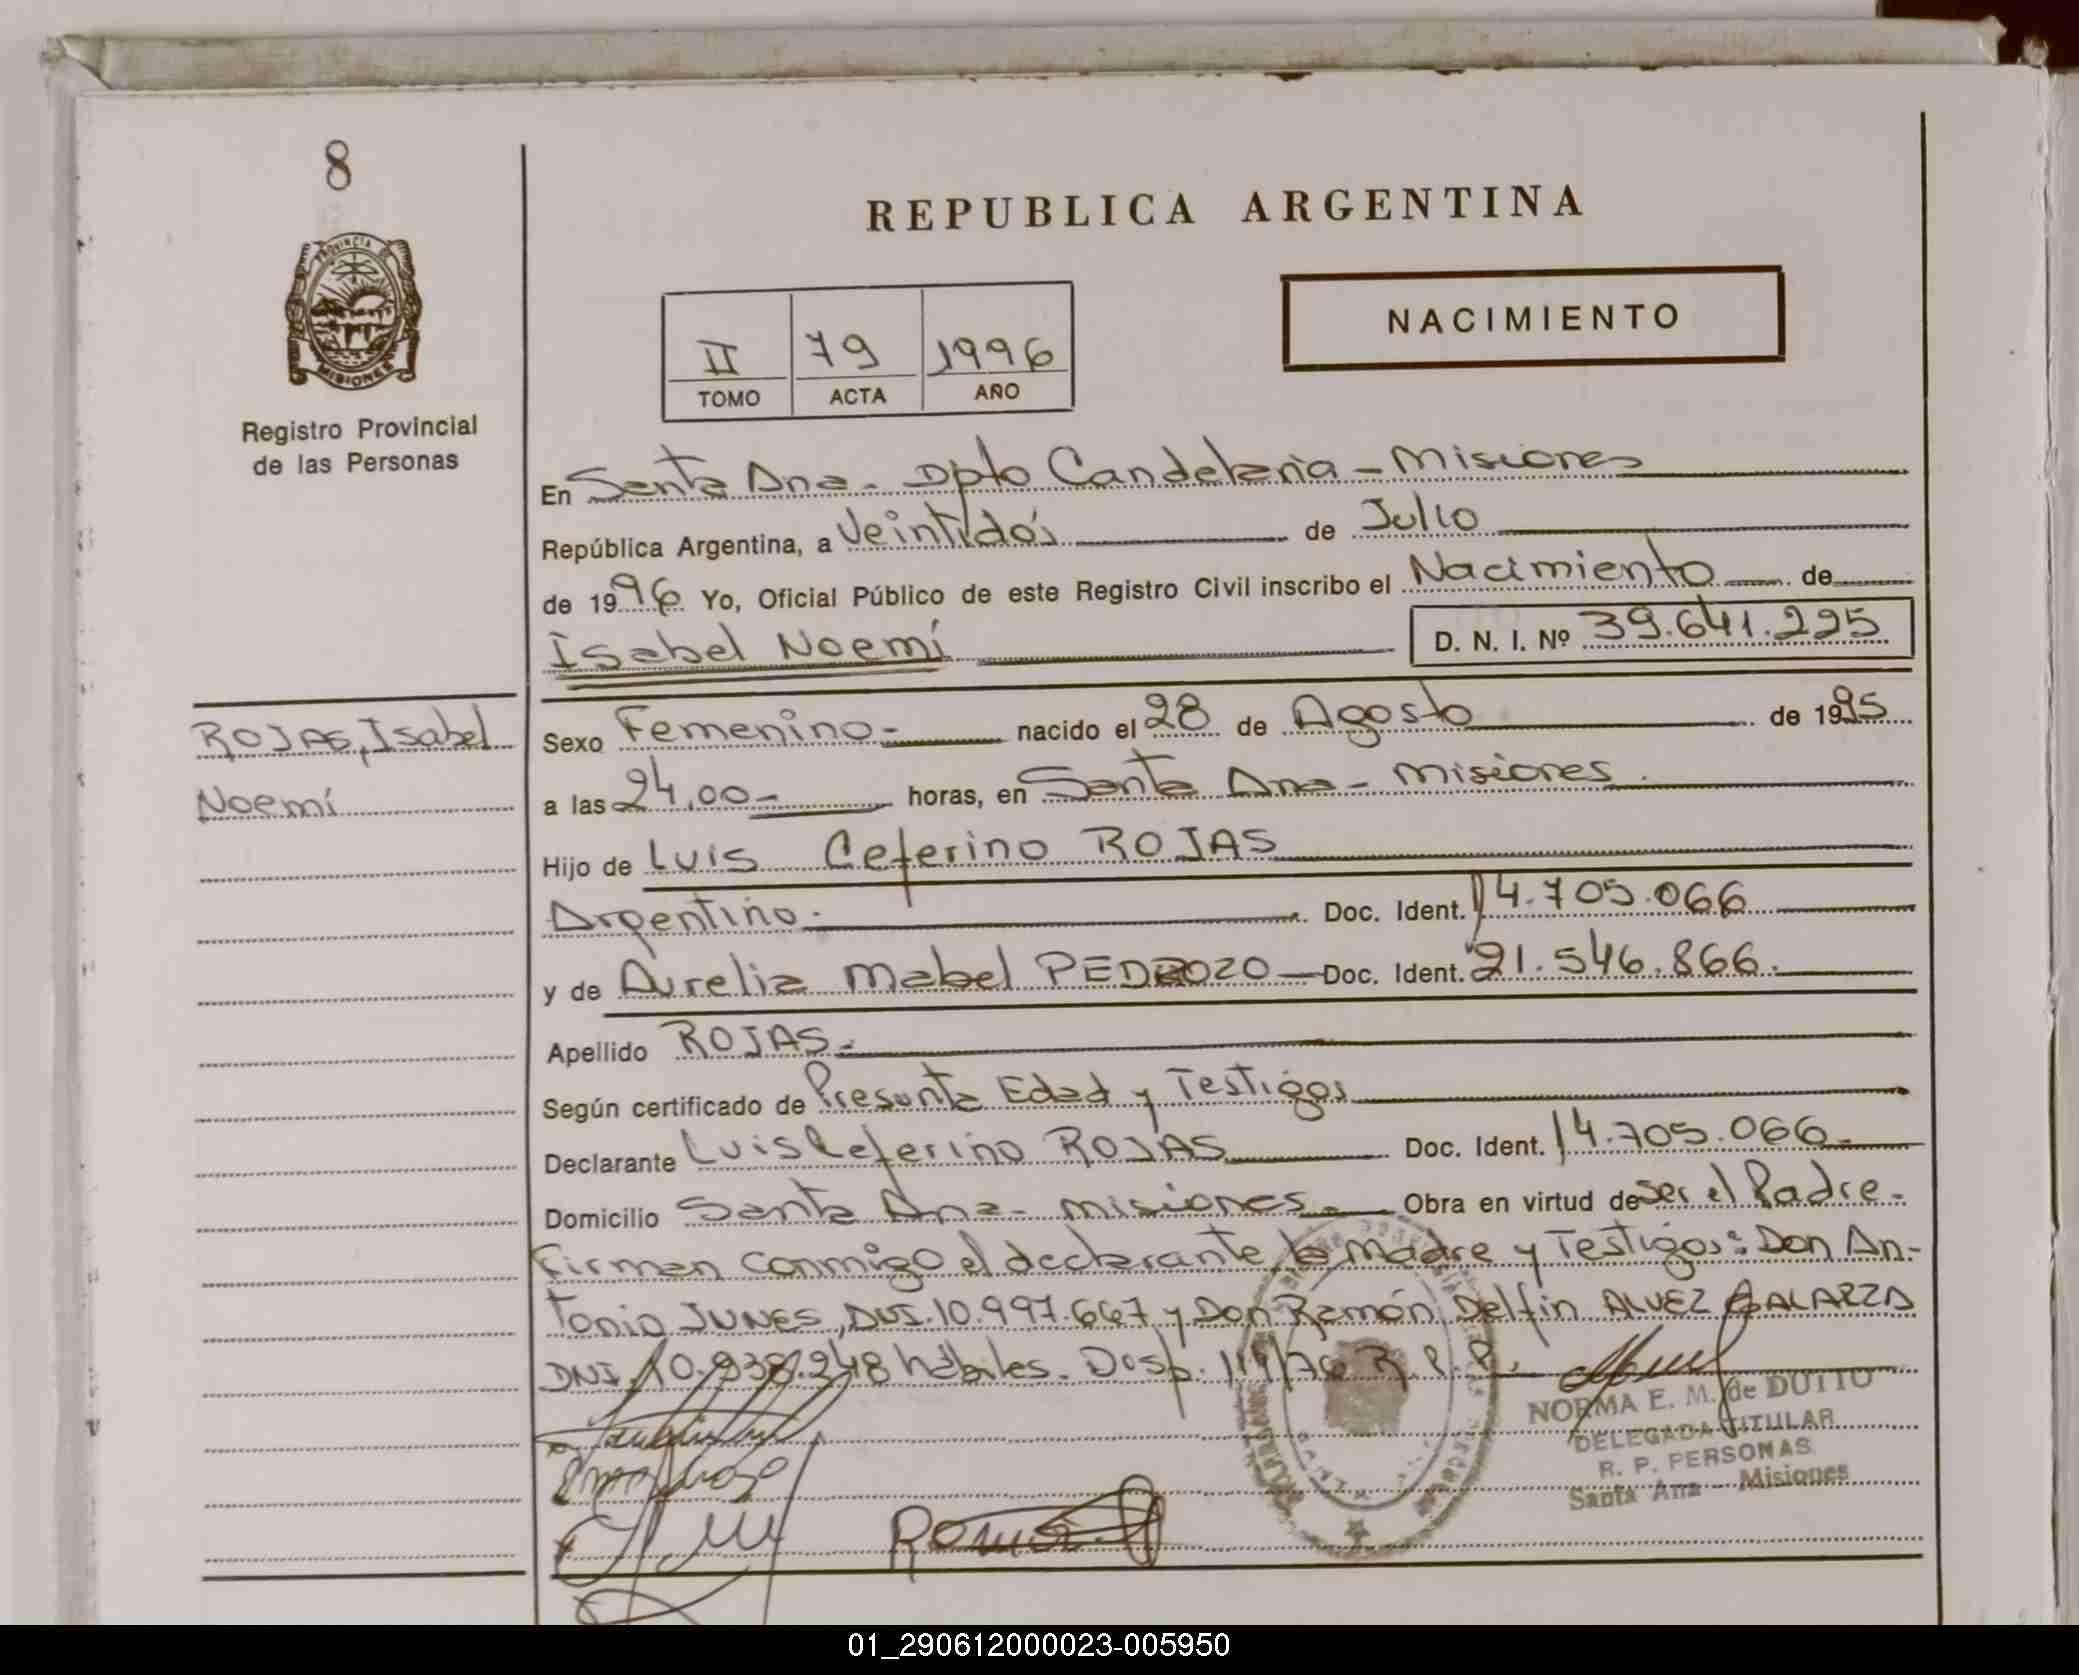 8
PROVINCIA DE
MISIONES
Registro Provincial
de las Personas
REPUBLICA ARGENTINA
NACIMIENTO
II 79 1996
TOMO ACTA AÑO
En Santa Ana - Dpto Candelaria - Misiones
República Argentina, a Veintidós de Julio
de 1996 Yo, Oficial Público de este Registro Civil inscribo el Nacimiento de
Isabel Noemí D. N. I. Nº 39.641.295
ROJAS, Isabel
Noemí
Sexo Femenino - nacido el 28 de Agosto de 1995
a las 24,00 - horas, en Santa Ana - Misiones
Hijo de Luis Ceferino ROJAS
Argentino. Doc. Ident. 14.705.066
y de Aurelia Mabel PEDROZO - Doc. Ident. 21.546.866.
Apellido ROJAS.-
Según certificado de Presunta Edad y Testigos
Declarante Luis Ceferino ROJAS Doc. Ident. 14.705.066.-
Domicilio Santa Ana - Misiones.- Obra en virtud de ser el Padre.-
Firman conmigo el declarante la madre y Testigos: Don An-
tonio JUNES, DNI.10.997.667 y Don Ramón Delfin ALVEZ GALARZA
DNI.10.938.248 hábiles. Disp. 119/76 R.P.P.
NORMA E. M. de DUTTO
DELEGADA TITULAR
R. P. PERSONAS
Santa Ana - Misiones
01_290612000023-005950